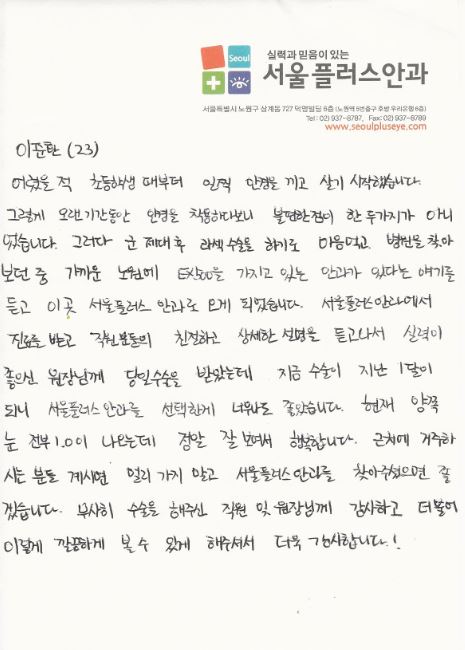 실력과 믿음이 있는
Seoul
서울플러스안과
서울특별시 노원구 상계동 727 덕영빌딩 6층 (노원역 5번출구 호방 우리은행 6층)
Tel : 02) 937-8787, Fax: 02) 937-8789
www.seoulpluseye.com
이준환 (23)
어렸을 적 초등학생 때부터 일찍 안경을 끼고 살기 시작했습니다.
그렇게 오랜기간동안 안경을 착용하다보니 불편한점이 한 두가지가 아니
었습니다. 그러다 군 제대 후 라섹수술을 하기로 마음먹고 병원을 찾아
보던 중 가까운 노원에 EX500을 가지고 있는 안과가 있다는 얘기를
듣고 이곳 서울플러스 안과로 오게 되었습니다. 서울플러스안과에서
진료를 받고 직원분들의 친절하고 상세한 설명을 듣고나서 실력이
좋으신 원장님께 당일수술을 받았는데 지금 수술이 지난 1달이
되니 서울플러스안과를 선택한게 너무나도 좋았습니다. 현재 양쪽
눈 전부 1.0이 나오는데 정말 잘 보여서 행복합니다. 근처에 거주하
시는 분들 계시면 멀리 가지 말고 서울플러스안과를 찾아주셨으면 좋
겠습니다. 무사히 수술을 해주신 직원 및 원장님께 감사하고 더불어
이렇게 깔끔하게 볼 수 있게 해주셔서 더욱 감사합니다.!